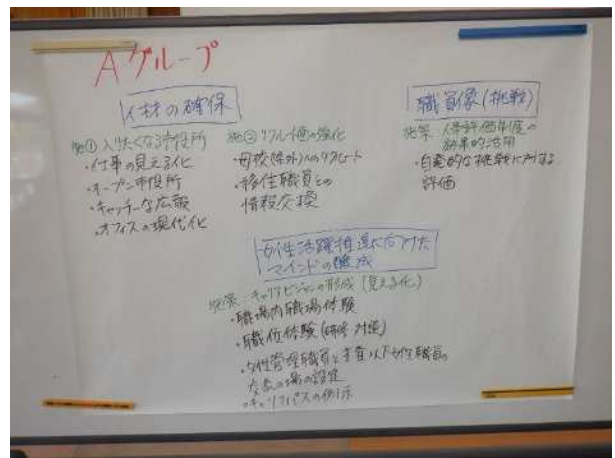 Aグループ
人材の確保
施① 入りたくなる市役所
・仕事の見える化
・オープン市役所
・キャッチーな広報
・オフィスの現代化
施② リクルート活動の強化
・母校(県外)へのリクルート
・移住職員との
情報交換
職員像(挑戦)
施策 人事評価制度の
効果的活用
・自発的な挑戦に対する
評価
女性活躍推進に向けた
マインドの醸成
施策:キャリアビジョンの形成(見える化)
・職場内職場体験
・職位体験(研修・対話)
・女性管理職員と主査以下女性職員の
交流の場の設定
・キャリアパスの例示